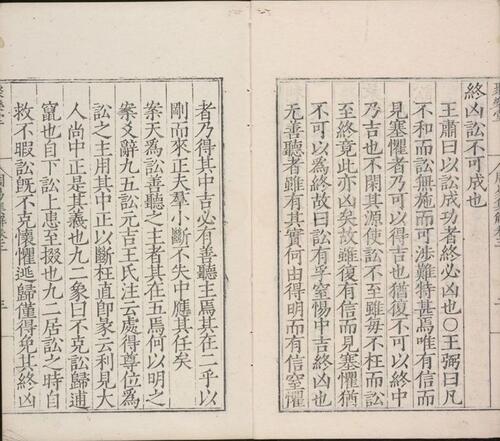 終凶訟不可成也
王肅曰以訟成功者終必凶也〇王弼曰凡
不和而訟無施而可涉難特甚焉唯有信而
見塞懼者乃可以得吉也猶復不可以終中
乃吉也不閑其源使訟不至雖每不枉而訟
至終竟此亦凶矣故雖復有信而見塞懼猶
不可以為終故曰訟有孚窒惕中吉終凶也
无善聽者雖有其實何由得明而有信窒懼
者乃得其中吉必有善聽主焉其在二乎以
剛而來正夫羣小斷不失中應其任矣
案夫為訟善聽之主者其在五焉何以明之
案爻辭九五訟元吉王氏注云處得尊位為
訟之主用其中正以斷枉直即彖云利見大
人尚中正是其義也九二象曰不克訟歸逋
竄也自下訟上患至掇也九二居訟之時自
救不暇訟既不克懷懼逃歸僅得免其終凶